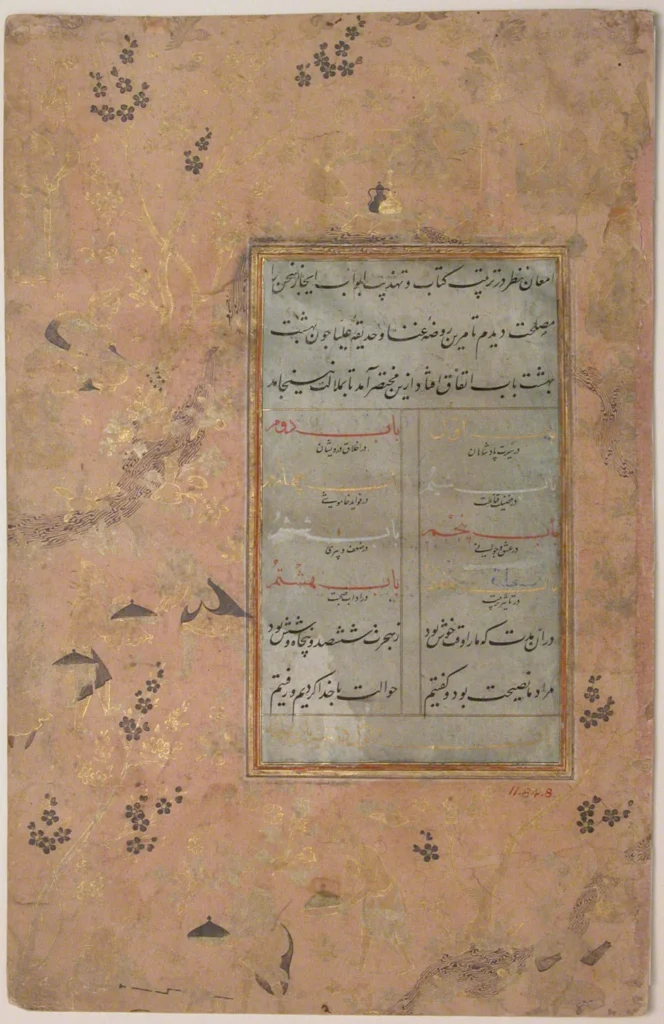 امعان نظر در ترتیب کتاب و تهذیب ابواب ایجاز سخن را
مصلحت دیدم تا مرین روضه غنا و حدیقه علیا چون بهشت
بهشت باب اتفاق افتاد ازین مختصر آمد تا بملالت نینجامد
باب اول باب دوم
در سیرت پادشاهان در اخلاق درویشان
باب سیم باب چهارم
در فضیلت قناعت در فواید خاموشی
باب پنجم باب ششم
در عشق و جوانی در ضعف و پیری
باب هفتم باب هشتم
در تاثیر تربیت در اداب صحبت
دران مدت که ما را وقت خوش بود ز هجرت ششصد و پنجاه و شش بود
مراد ما نصیحت بود و گفتیم حوالت با خدا کردیم و رفتیم
11.84.8